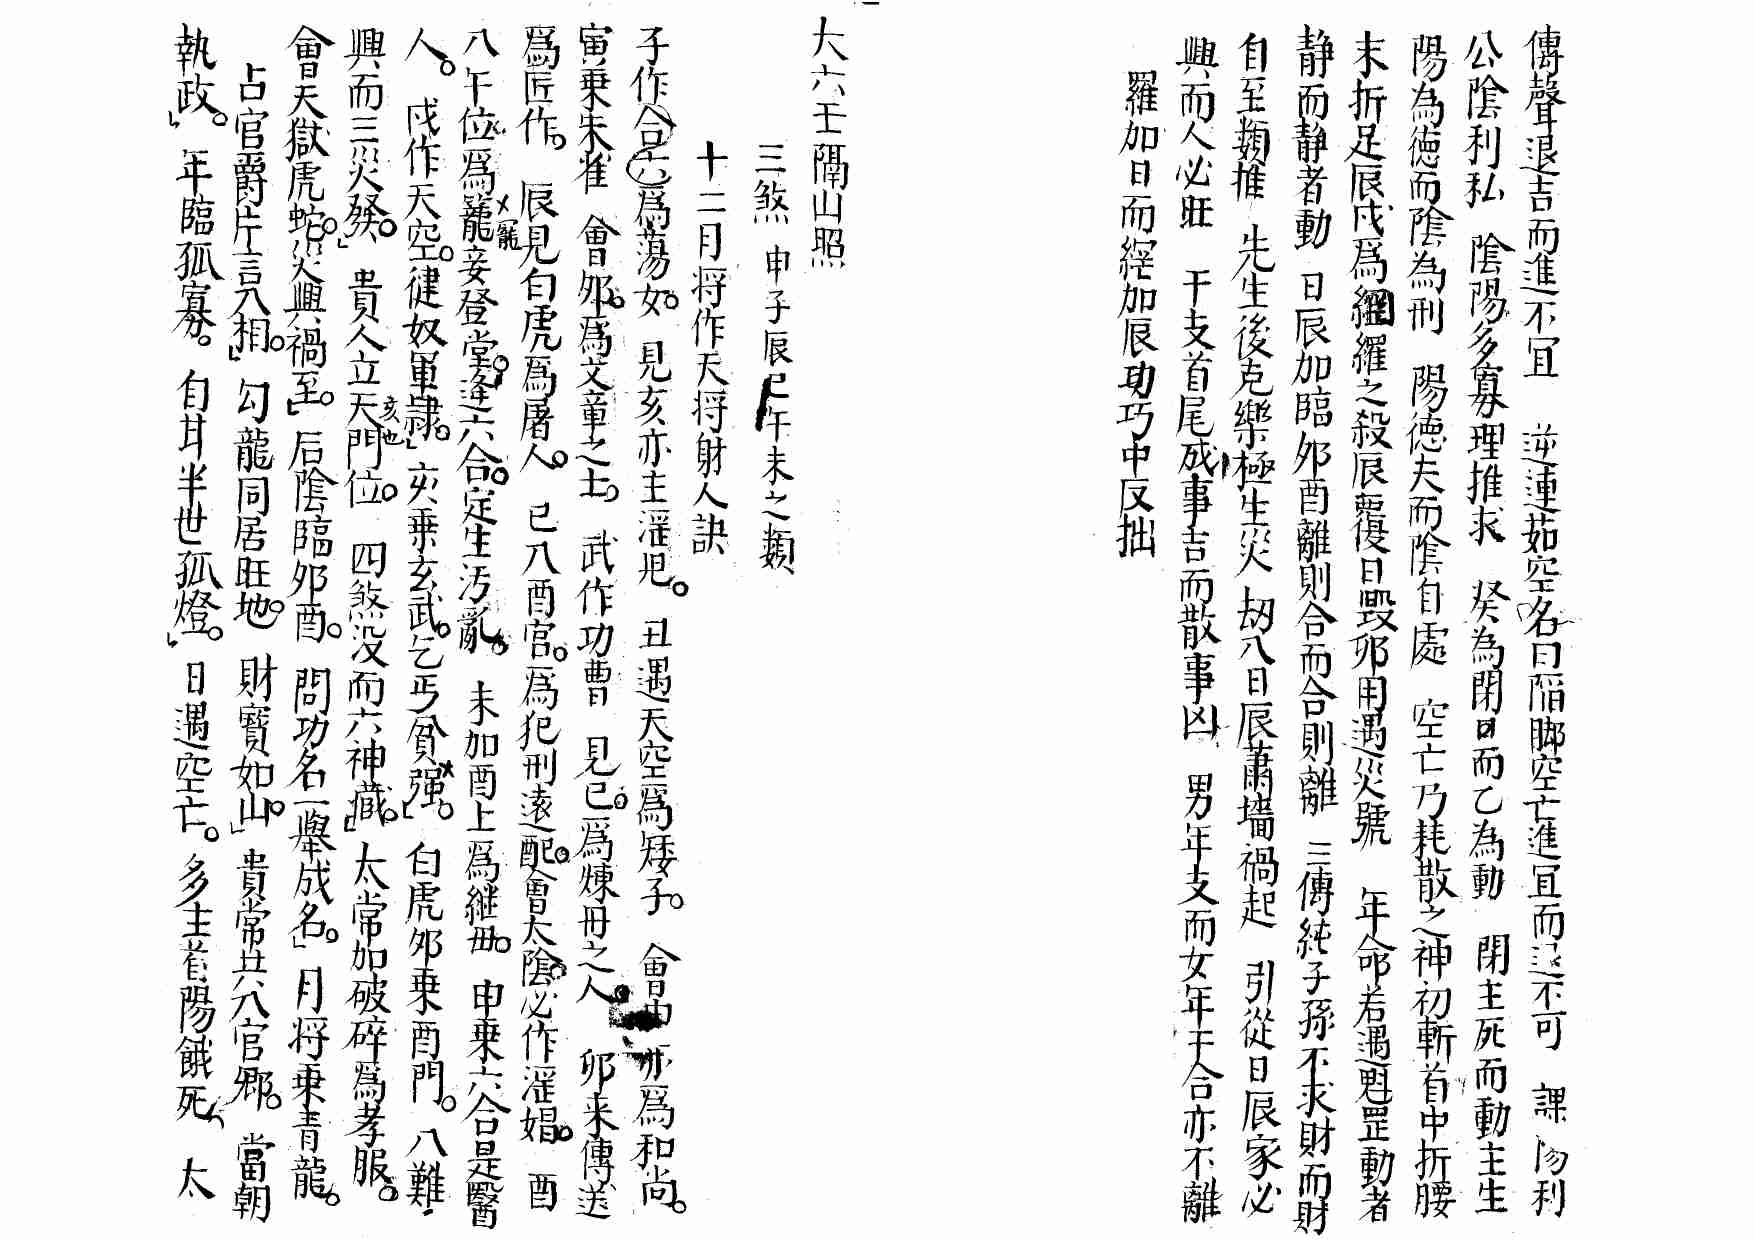 傳聲退吉而進不宜　逆連茹空名曰陷脚空亡進宜而退不可　課陽利
公陰利私　陰陽多寡理推求　癸為閉日而乙為動　閉主死而動主生
陽為德而陰為刑　陽德夫而陰自處　空亡乃耗散之神初斬首中折腰
末折足辰戌爲網羅之殺辰覆日毀卯用遇災號　年命若遇魁罡動者
静而静者動　日辰加臨夘酉離則合而合則離　三傳純子孫不求財而財
自至類推　先生後克樂極生災　刼入日辰蕭墻禍起　引從日辰家必
興而人必旺　干支首尾成事吉而散事凶　男年支而女年干合亦不離
羅加日而綱加辰功巧中反拙
大六壬隔山照
三煞　申子辰巳午未之類
十二月将作天将射人訣
子作合六爲蕩女。見亥亦主淫思。丑遇天空爲矮子。會申亦爲和尚。
寅乗朱雀　會夘。爲文章之士。武作功曹　見巳。爲煉丹之人　卯来傳送
爲匠作。辰見白虎爲屠人。巳入酉宫。爲犯刑遠配。會太陰。必作淫娼。酉
八午位爲寵妾登堂。逢六合。定生汚亂。未加酉上爲継母。申乗六合是醫
人。戌作天空。健奴軍隷。亥乗玄武。乞丐貧强。白虎夘乗酉門。八難
興而三災發。貴人立天門位。亥也　四煞没而六神藏。太常加破碎爲孝服。
會天獄虎蛇。災興禍至。后陰臨夘酉。問功名一舉成名。月将乗青龍。
占官爵片言入相。勾龍同居旺地。財寳如山。貴常共入官郷。當朝
執政。年臨孤寡。自甘半世孤燈。日遇空亡。多主首陽餓死　太